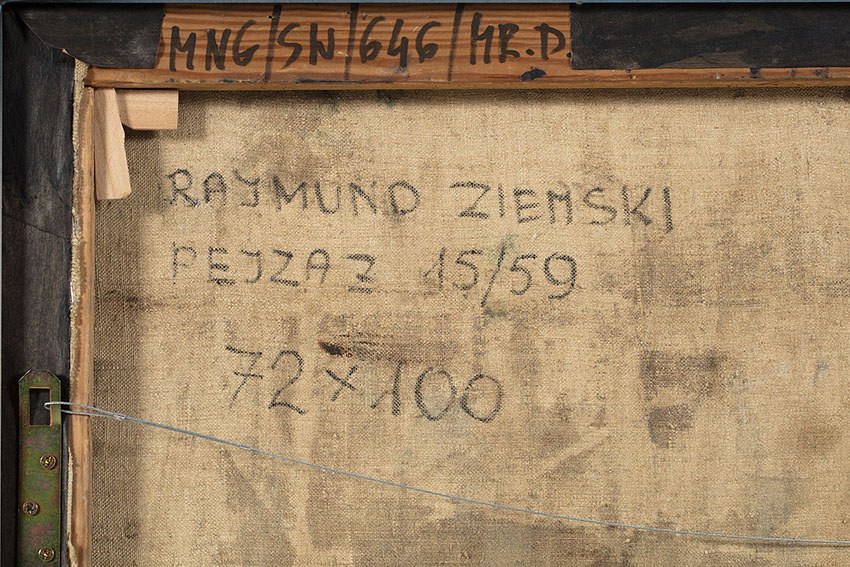 MNG/SN/646/MR.D.
RAJMUND ZIEMSKI
PEJZAZ 15/59
72 x 100